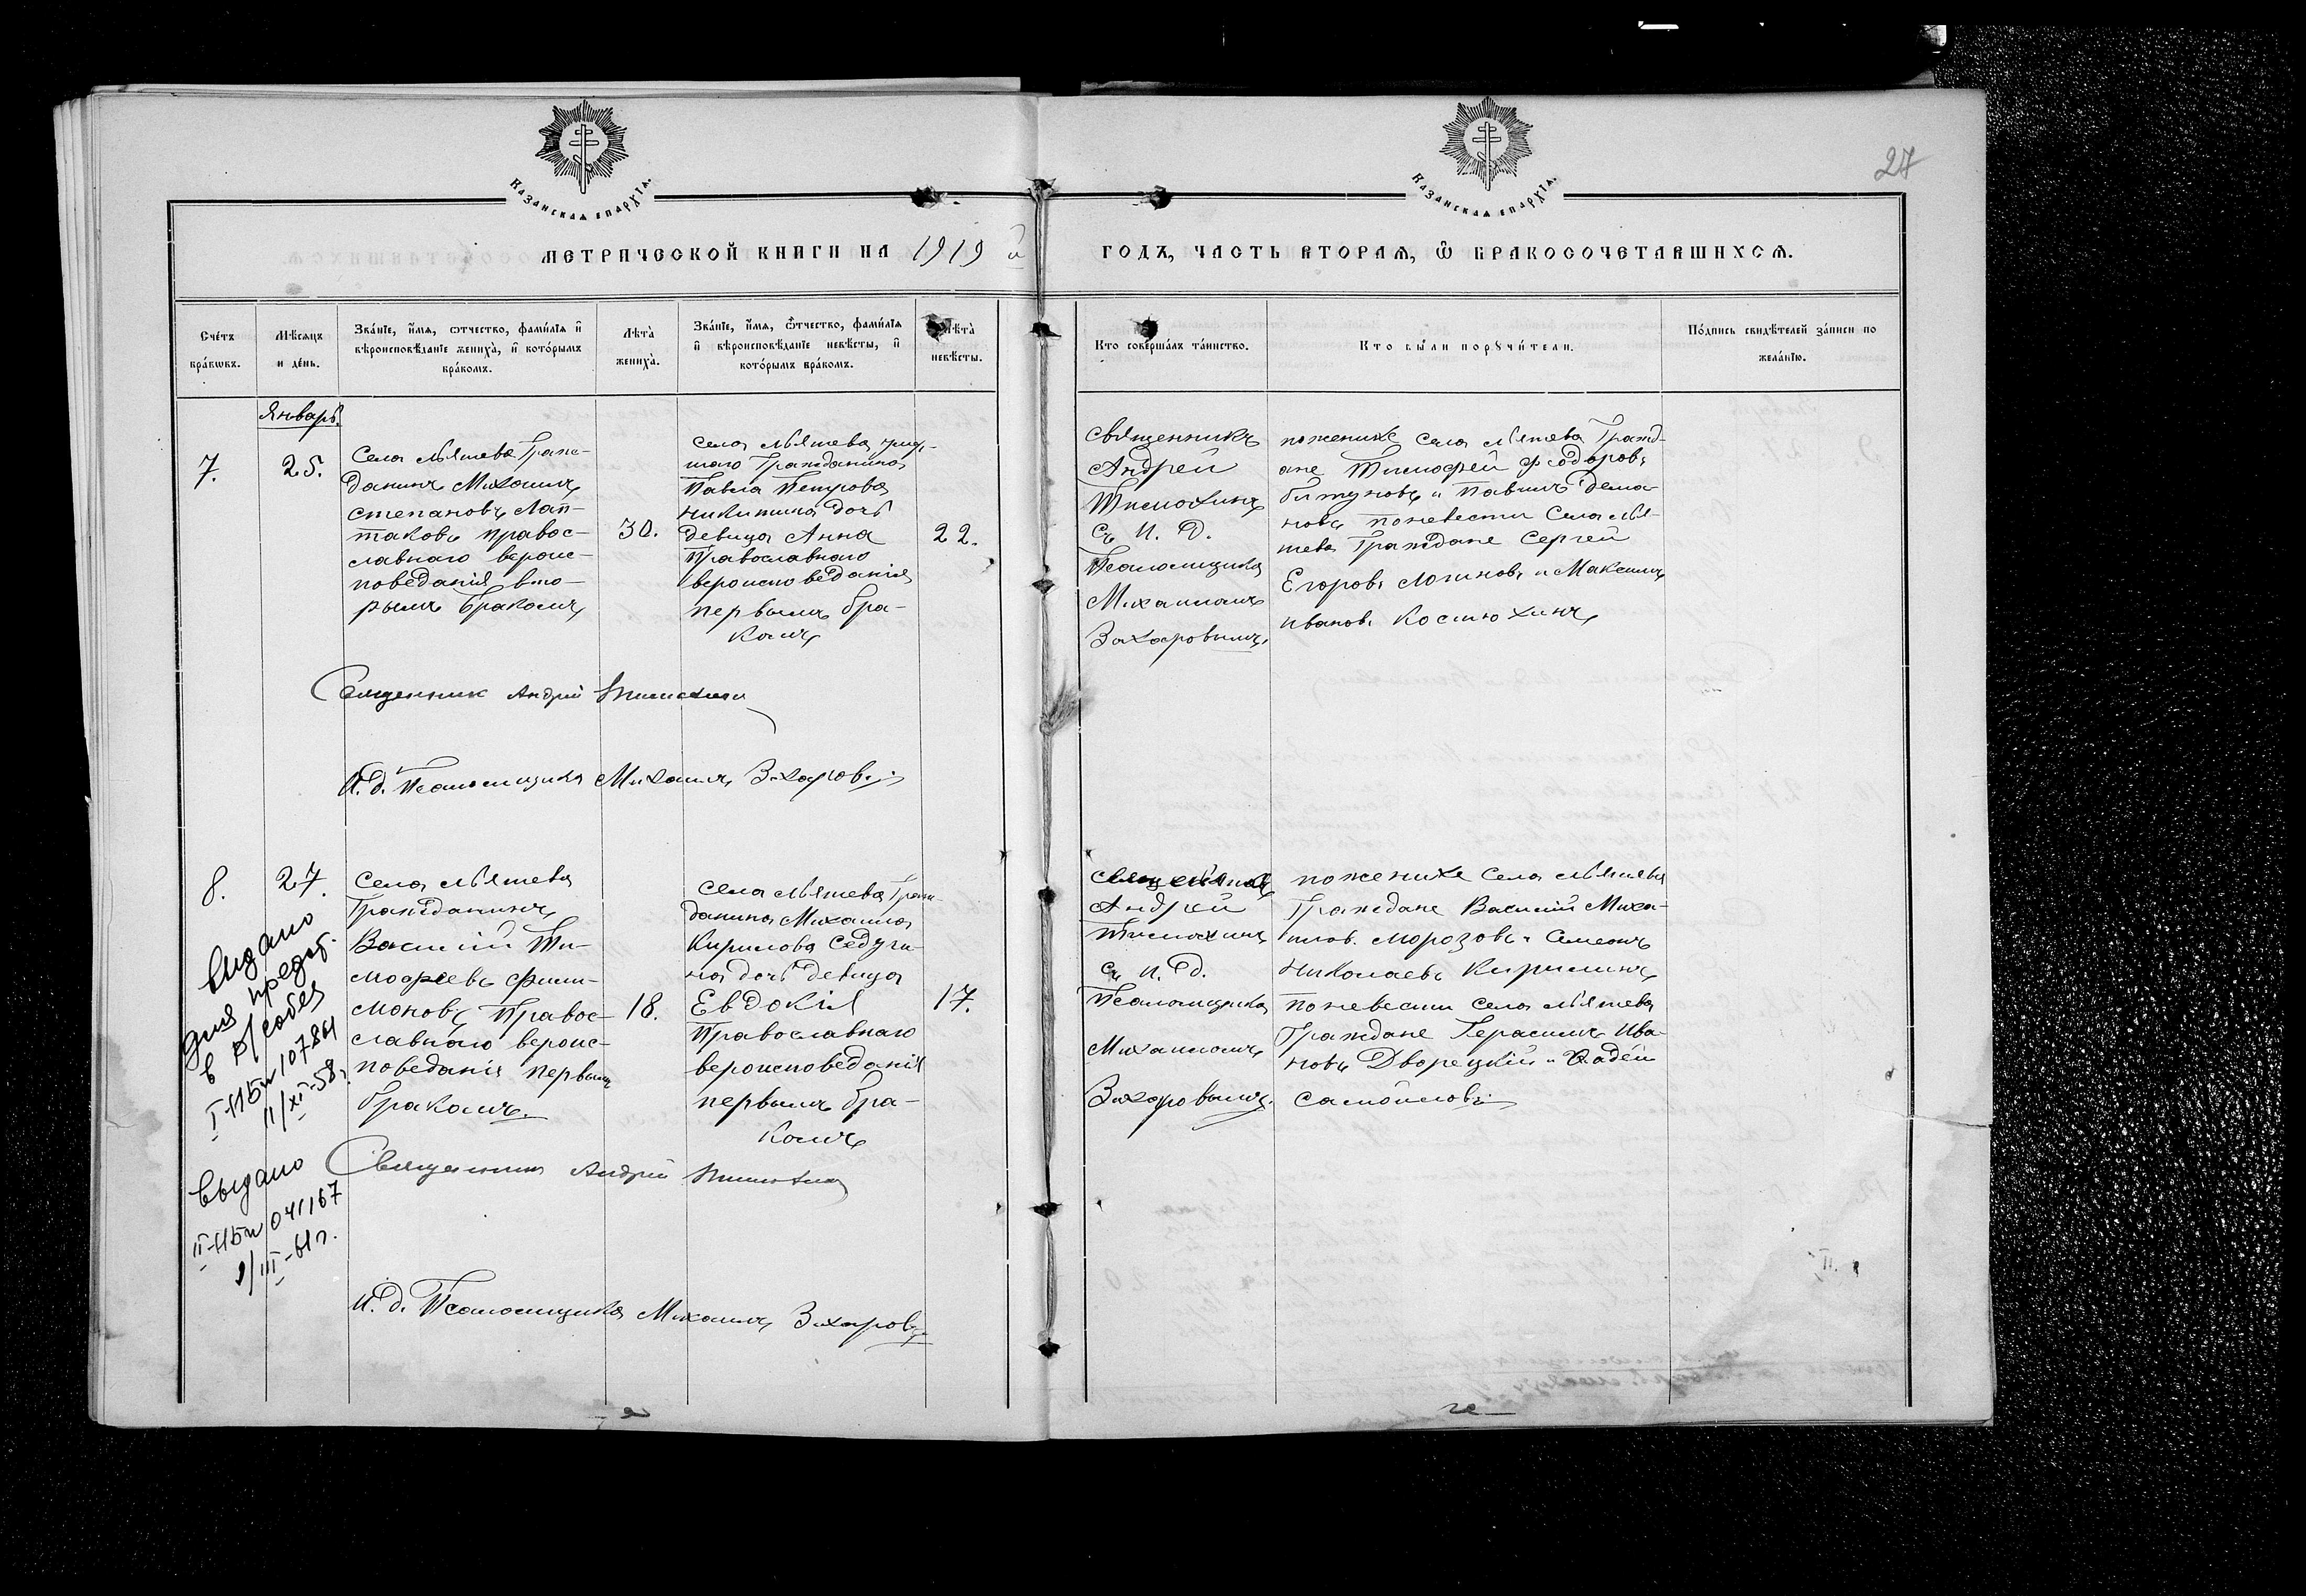 27
Казанская епархіѧ.
Казанская епархіѧ.
метрической книги на 1919 й
годъ, часть вторая, ѡ бракосочетавшихсѧ.
Счетъ браковъ.
Мѣсяцъ и день.
Званіе, имя, отчество, фамилія и вѣроисповѣданіе жениха, и которымъ бракомъ.
Лѣта жениха.
Званіе, имя, отчество, фамилія и вѣроисповѣданіе невѣсты, и которымъ бракомъ.
Лѣта невѣсты.
Кто совершалъ таинство.
Кто были поручители.
Подпись свидѣтелей записи по желанію.
Январь.
7.
25.
Села Мѣятева Граж-
данинъ Михаилъ
Степановъ Лап-
таковъ Правос-
славнаго вероис-
поведанія вто-
рымъ Бракомъ
30.
Села
Гражданина
Павла Петрова
Никитина дочь
девица Анна
Православнаго
вероисповеданія
первымъ бра-
комъ
22.
Священникъ
Андрей
Тимохинъ
съ И. Д.
Псаломщика
Михаиломъ
Захаровымъ.
по женихе Села Гражд-
ане Тимофей Федоровъ
и Павелъ Дема-
новъ по невести Села
Граждане Сергей
Егоровъ Логиновъ и Максимъ
Ивановъ Костюхинъ
Священник Андрей Тимохин
И. д. Псаломщика Михаилъ Захаровъ
8.
27.
Села
Гражданинъ
Василій Ти-
мофеевъ Фили-
моновъ Правос-
славнаго вероис-
поведанія первым
бракомъ.
18.
Села Граж-
данина Михаила
Кирилова Седуги-
на дочь девица
Евдокія
Православнаго
вероисповеданія
первымъ бра-
комъ
17.
Священникъ
Андрей
Тимохинъ
съ И. Д.
Псаломщика
Михаиломъ
Захаровымъ.
по женихе Села
Граждане Василій Миха-
илов. Морозовъ и Семенъ
Николаевъ Кирилинъ
по невести Села
Граждане Герасимъ Ива-
новъ Дворецкій и Фадей
Самойловъ
выдано
для предст.
в р/собез
I-НБ № 107864
11/XI-58г.
выдано
II-НБ № 041167
9/III-61г.
Священник Андрей Тимохин
И. д. Псаломщика Михаилъ Захаровъ